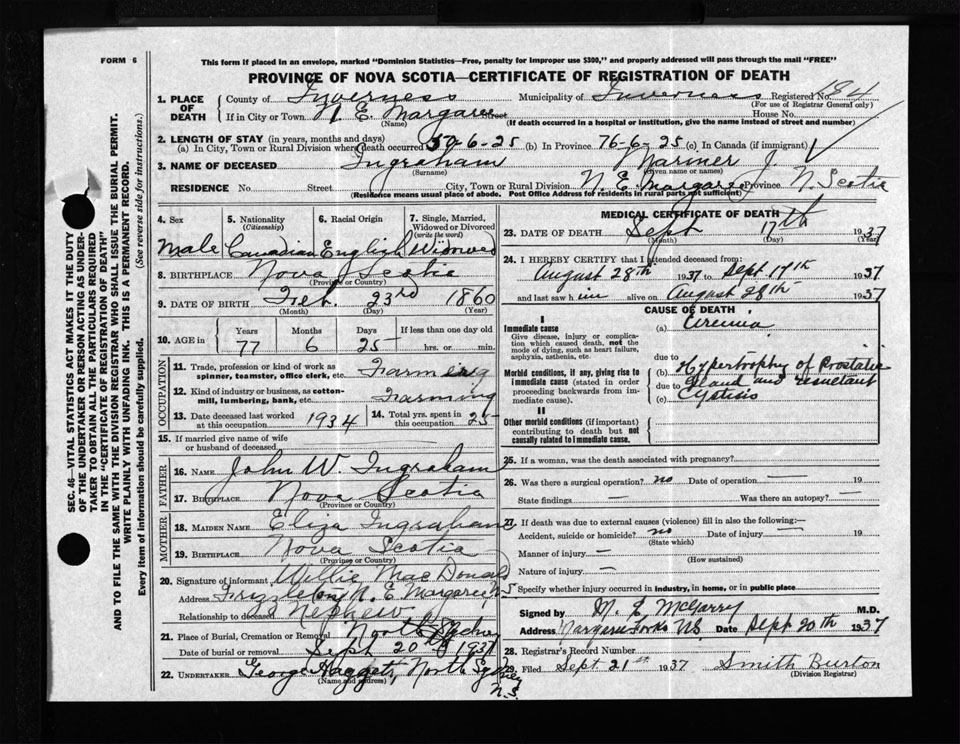 FORM 6
This form if placed in an envelope, marked "Dominion Statistics—Free, penalty for improper use $300," and properly addressed will pass through the mail "FREE"
PROVINCE OF NOVA SCOTIA—CERTIFICATE OF REGISTRATION OF DEATH
1. PLACE OF DEATH County of Inverness Municipality of Inverness Registered No. 84
(For use of Registrar General only)
If in City or Town N. E. Margaree Street House No.
(Name) (If death occurred in a hospital or institution, give the name instead of street and number)
2. LENGTH OF STAY (in years, months and days)
(a) In City, Town or Rural Division where death occurred 50-6-25 (b) In Province 76-6-25 (c) In Canada (if immigrant)
3. NAME OF DECEASED Ingraham Mariner J.
(Surname) (Given name or names)
RESIDENCE No. Street City, Town or Rural Division N. E. Margaree Province N. Scotia
(Residence means usual place of abode. Post Office Address for residents in rural parts not sufficient)
4. Sex 5. Nationality (Citizenship) 6. Racial Origin 7. Single, Married, Widowed or Divorced (write the word)
Male Canadian English Widowed
8. BIRTHPLACE Nova Scotia
(Province or Country)
9. DATE OF BIRTH Feb. 23rd 1860
(Month) (Day) (Year)
10. AGE in Years Months Days If less than one day old
77 6 25 hrs. or min.
OCCUPATION
11. Trade, profession or kind of work as spinner, teamster, office clerk, etc. Farming
12. Kind of industry or business, as cotton-mill, lumbering, bank, etc. Farming
13. Date deceased last worked at this occupation 1934 14. Total yrs. spent in this occupation 25
15. If married give name of wife or husband of deceased
FATHER
16. NAME John W. Ingraham
17. BIRTHPLACE Nova Scotia
(Province or Country)
MOTHER
18. MAIDEN NAME Eliza Ingraham
19. BIRTHPLACE Nova Scotia
(Province or Country)
20. Signature of informant Willie MacDonald
Address Frizzleton N. E. Margaree N S
Relationship to deceased Nephew
21. Place of Burial, Cremation or Removal North Sydney
Date of burial or removal Sept 20 1937
22. UNDERTAKER George Haggett, North Sydney N.S.
(Name and address)
MEDICAL CERTIFICATE OF DEATH
23. DATE OF DEATH Sept 17th 1937
(Month) (Day) (Year)
24. I HEREBY CERTIFY that I attended deceased from:
August 28th 1937 to Sept 17th 1937
and last saw h im alive on August 28th 1937
CAUSE OF DEATH
I
Immediate cause
Give disease, injury or complication which caused death, not the mode of dying, such as heart failure, asphyxia, asthenia, etc.
(a) Uremia
due to
Morbid conditions, if any, giving rise to immediate cause (stated in order proceeding backwards from immediate cause).
(b) Hypertrophy of Prostatic
due to Gland and resultant
(c) Cystitis
II
Other morbid conditions (if important) contributing to death but not causally related to immediate cause.
25. If a woman, was the death associated with pregnancy?
26. Was there a surgical operation? no Date of operation — 19
State findings — Was there an autopsy? —
27. If death was due to external causes (violence) fill in also the following:—
Accident, suicide or homicide? no Date of injury — 19
(State which)
Manner of injury —
(How sustained)
Nature of injury —
Specify whether injury occurred in industry, in home, or in public place
Signed by M. E. McGarry M.D.
Address Margaree Forks N.S. Date Sept 20th 1937
28. Registrar's Record Number
29. Filed Sept 21st 1937 Smith Burton
(Division Registrar)
SEC. 46—VITAL STATISTICS ACT MAKES IT THE DUTY
OF THE UNDERTAKER OR PERSON ACTING AS UNDER-
TAKER TO OBTAIN ALL THE PARTICULARS REQUIRED
IN THE "CERTIFICATE OF REGISTRATION OF DEATH"
AND TO FILE THE SAME WITH THE DIVISION REGISTRAR WHO SHALL ISSUE THE BURIAL PERMIT.
WRITE PLAINLY WITH UNFADING INK. THIS IS A PERMANENT RECORD.
Every item of information should be carefully supplied. (See reverse side for instructions.)